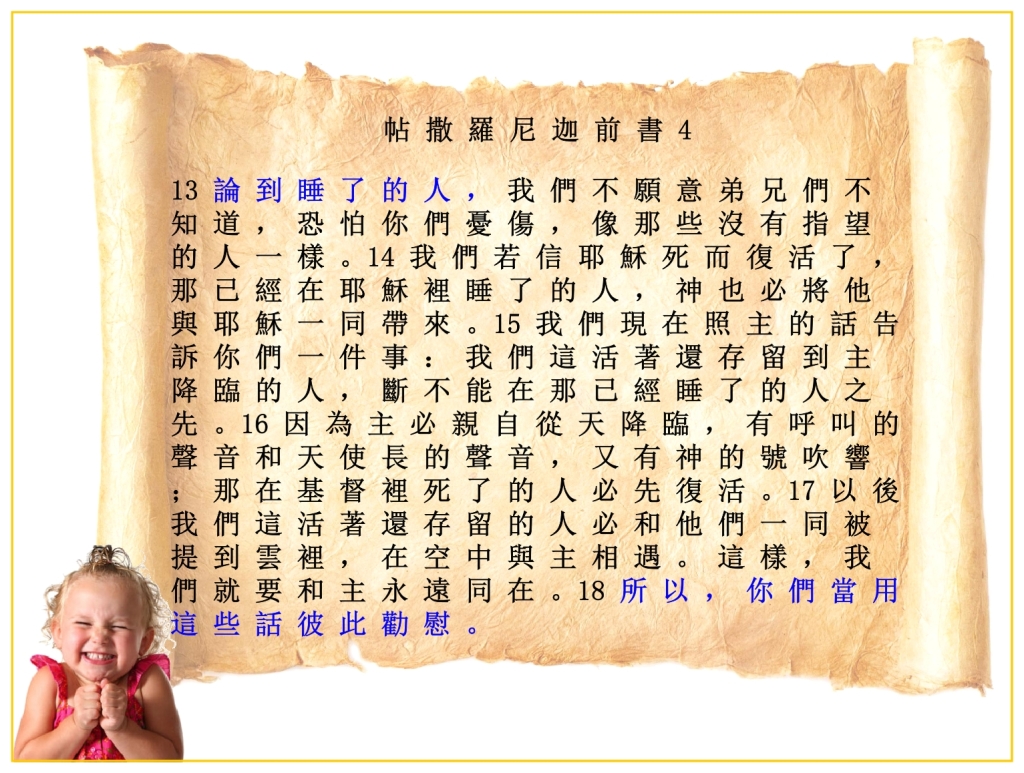 帖撒羅尼迦前書 4
13 論到睡了的人，我們不願意弟兄們不
知道，恐怕你們憂傷，像那些沒有指望
的人一樣。14 我們若信耶穌死而復活了，
那已經在耶穌裡睡了的人，神也必將他
與耶穌一同帶來。15 我們現在照主的話告
訴你們一件事：我們這活著還存留到主
降臨的人，斷不能在那已經睡了的人之
先。16 因為主必親自從天降臨，有呼叫的
聲音和天使長的聲音，又有神的號吹響
；那在基督裡死了的人必先復活。17 以後
我們這活著還存留的人必和他們一同被
提到雲裡，在空中與主相遇。這樣，我
們就要和主永遠同在。18 所以，你們當用
這些話彼此勸慰。